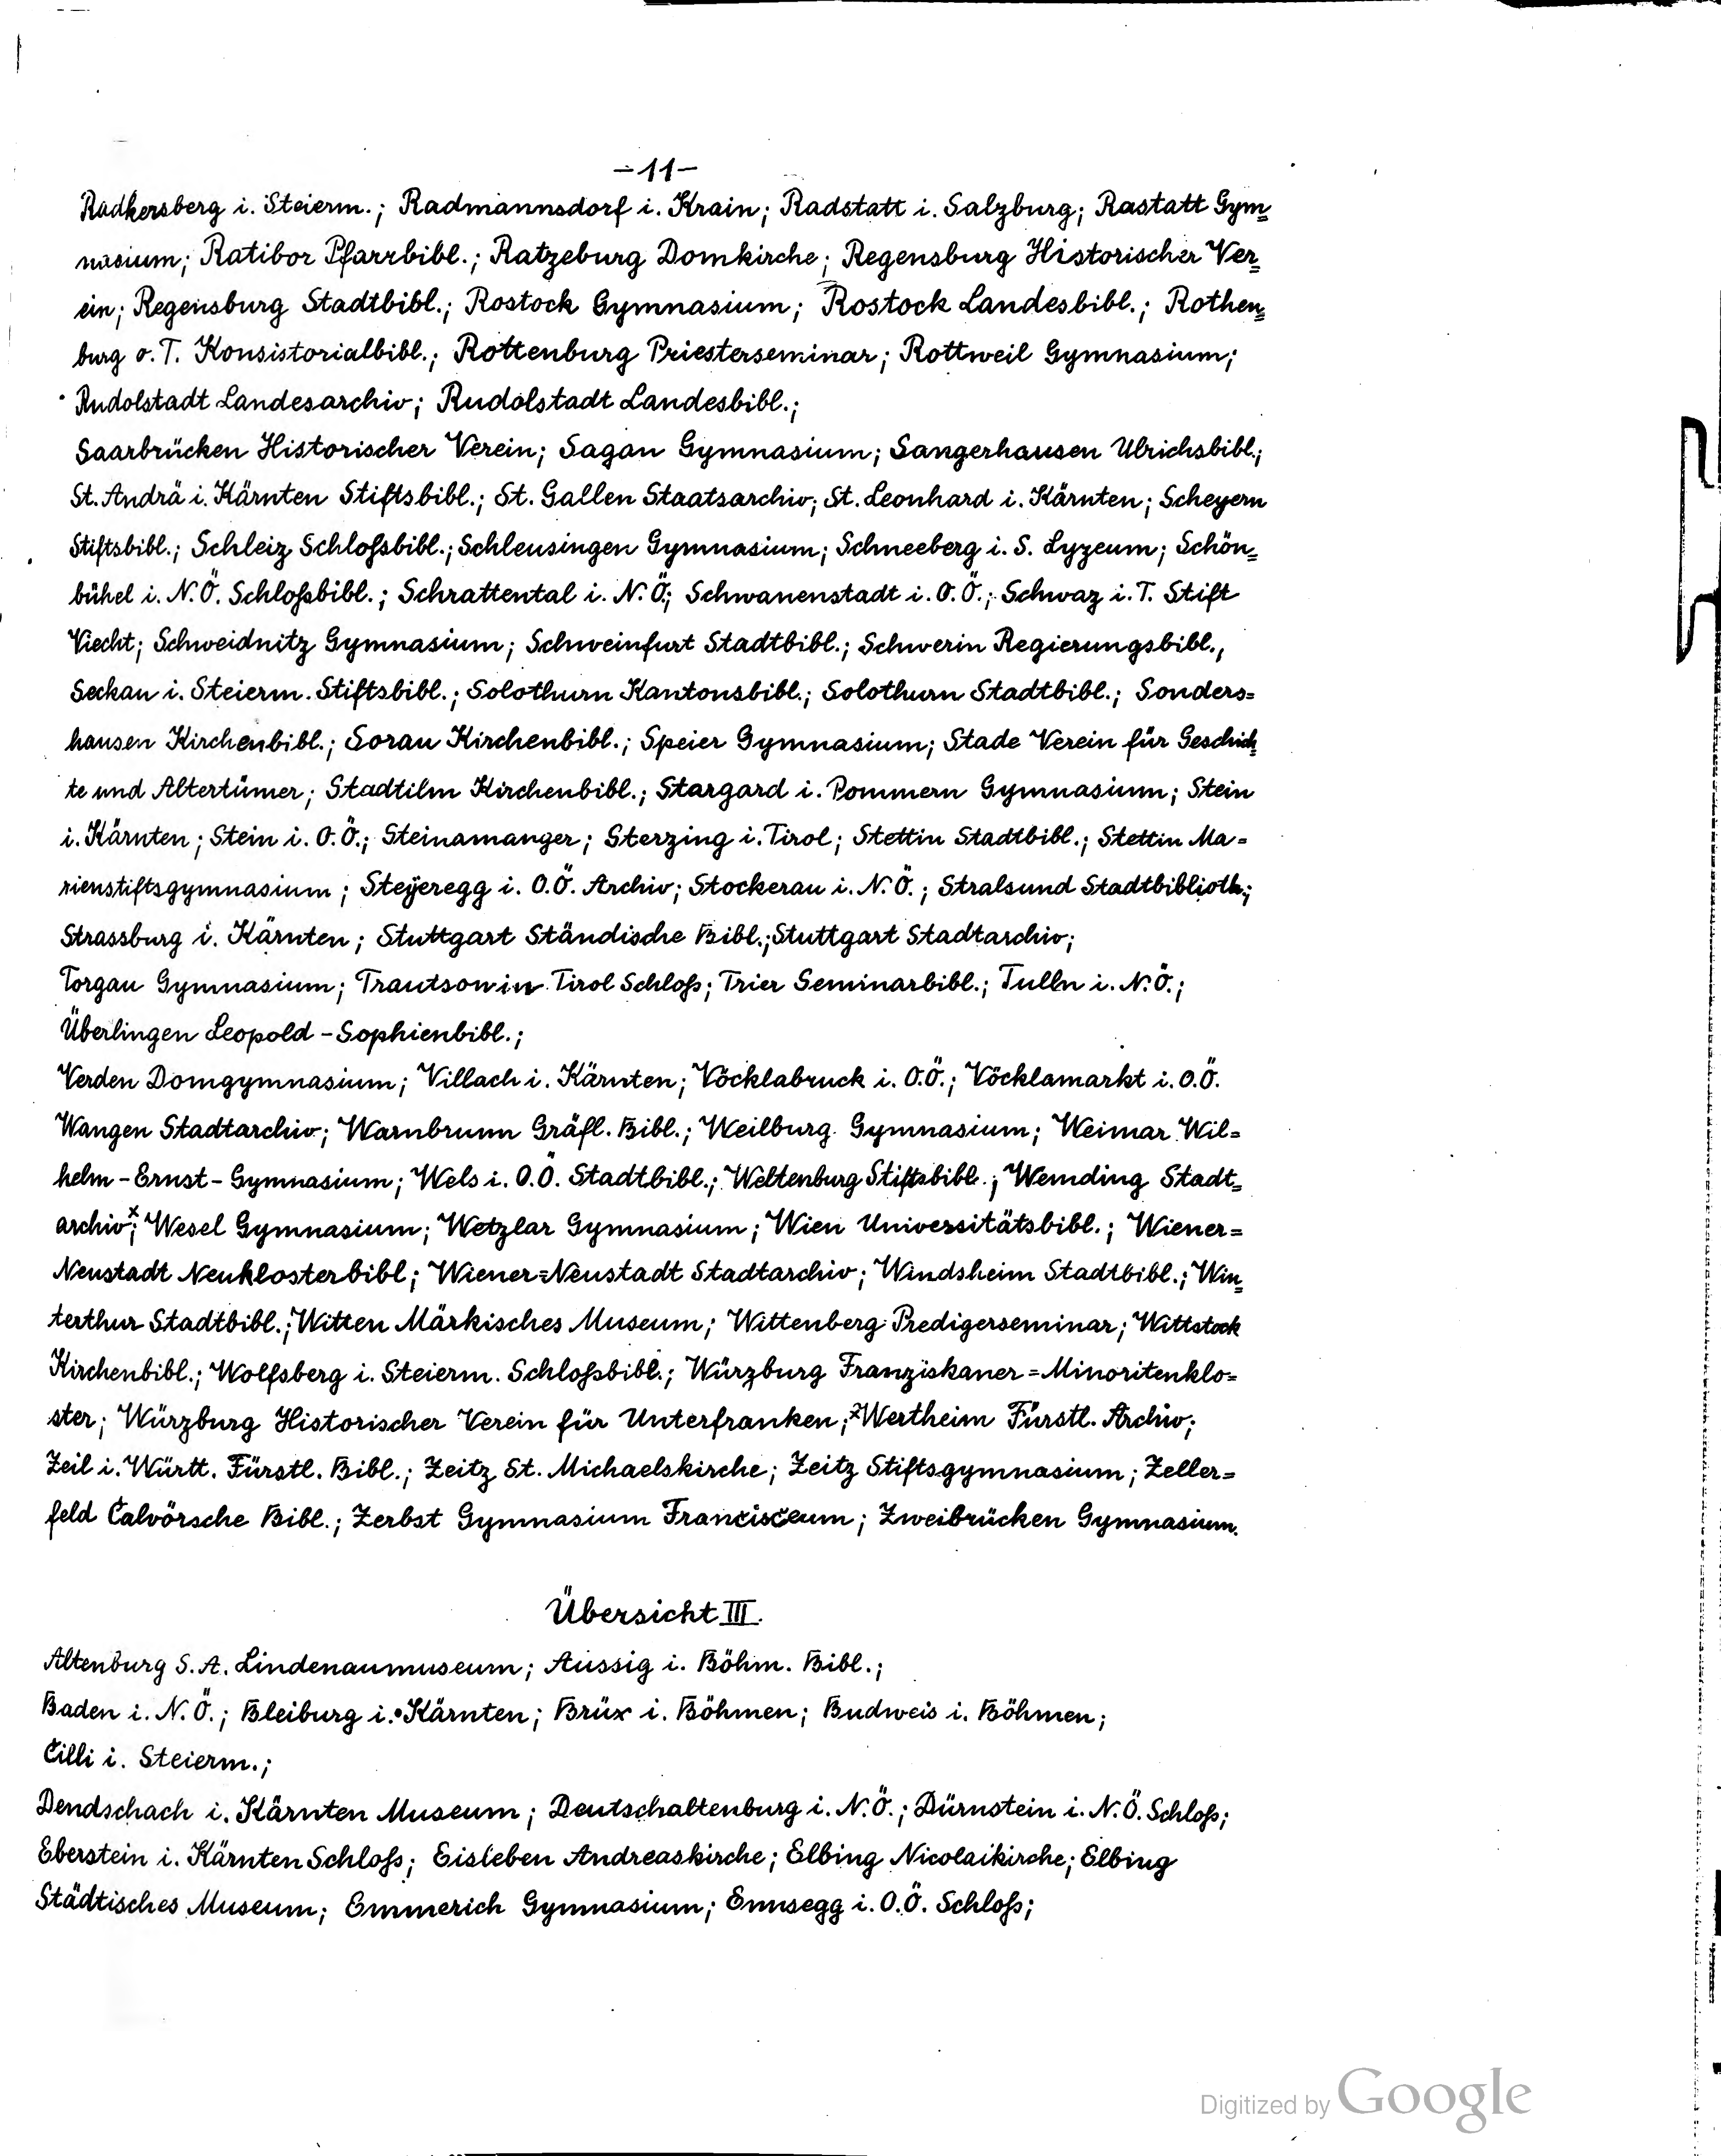 -11-
Radkersberg i. Steierm.; Radmannsdorf i. Krain; Radstatt i. Salzburg; Rastatt Gym=
nasium; Ratibor Pfarrbibl.; Ratzeburg Domkirche; Regensburg Historischer Ver=
ein; Regensburg Stadtbibl.; Rostock Gymnasium; Rostock Landesbibl.; Rothen=
burg o. T. Konsistorialbibl.; Rottenburg Priesterseminar; Rottweil Gymnasium;
Rudolstadt Landesarchiv; Rudolstadt Landesbibl.;
Saarbrücken Historischer Verein; Sagan Gymnasium; Sangerhausen Ulrichsbibl.;
St. Andrä i. Kärnten Stiftsbibl.; St. Gallen Staatsarchiv; St. Leonhard i. Kärnten; Scheyern
Stiftsbibl.; Schleiz Schloßbibl.; Schleusingen Gymnasium; Schneeberg i. S. Lyzeum; Schön=
bühel i. N.Ö. Schloßbibl.; Schrattental i. N.Ö.; Schwanenstadt i. O.Ö.; Schwaz i. T. Stift
Viecht; Schweidnitz Gymnasium; Schweinfurt Stadtbibl.; Schwerin Regierungsbibl.,
Seckau i. Steierm. Stiftsbibl.; Solothurn Kantonsbibl.; Solothurn Stadtbibl.; Sonders=
hausen Kirchenbibl.; Sorau Kirchenbibl.; Speier Gymnasium; Stade Verein für Geschich=
te und Altertümer; Stadtilm Kirchenbibl.; Stargard i. Pommern Gymnasium; Stein
i. Kärnten; Stein i. O.Ö.; Steinamanger; Sterzing i. Tirol; Stettin Stadtbibl.; Stettin Ma=
rienstiftsgymnasium; Steyeregg i. O.Ö. Archiv; Stockerau i. N.Ö.; Stralsund Stadtbiblioth.;
Strassburg i. Kärnten; Stuttgart Ständische Bibl.; Stuttgart Stadtarchiv;
Torgau Gymnasium; Trautson in Tirol Schloß; Trier Seminarbibl.; Tulln i. N.Ö.;
Überlingen Leopold-Sophienbibl.;
Verden Domgymnasium; Villach i. Kärnten; Vöcklabruck i. O.Ö.; Vöcklamarkt i. O.Ö.
Wangen Stadtarchiv; Warnbrunn Gräfl. Bibl.; Weilburg Gymnasium; Weimar Wil=
helm-Ernst-Gymnasium; Wels i. O.Ö. Stadtbibl.; Weltenburg Stiftsbibl.; Wemding Stadt=
archiv;x Wesel Gymnasium; Wetzlar Gymnasium; Wien Universitätsbibl.; Wiener=
Neustadt Neuklosterbibl; Wiener=Neustadt Stadtarchiv; Windsheim Stadtbibl.; Win=
terthur Stadtbibl.; Witten Märkisches Museum; Wittenberg Predigerseminar; Wittstock
Kirchenbibl.; Wolfsberg i. Steierm. Schloßbibl.; Würzburg Franziskaner=Minoritenklo=
ster; Würzburg Historischer Verein für Unterfranken; xWertheim Fürstl. Archiv;
Zeil i. Württ. Fürstl. Bibl.; Zeitz St. Michaelskirche; Zeitz Stiftsgymnasium; Zeller=
feld Calvörsche Bibl.; Zerbst Gymnasium Francisceum; Zweibrücken Gymnasium.
Übersicht III.
Altenburg S. A. Lindenaumuseum; Aussig i. Böhm. Bibl.;
Baden i. N.Ö.; Bleiburg i. Kärnten; Brüx i. Böhmen; Budweis i. Böhmen;
Cilli i. Steierm.;
Dendschach i. Kärnten Museum; Deutschaltenburg i. N.Ö.; Dürnstein i. N.Ö. Schloß;
Eberstein i. Kärnten Schloß; Eisleben Andreaskirche; Elbing Nicolaikirche; Elbing
Städtisches Museum; Emmerich Gymnasium; Ennsegg i. O.Ö. Schloß;
Digitized by Google